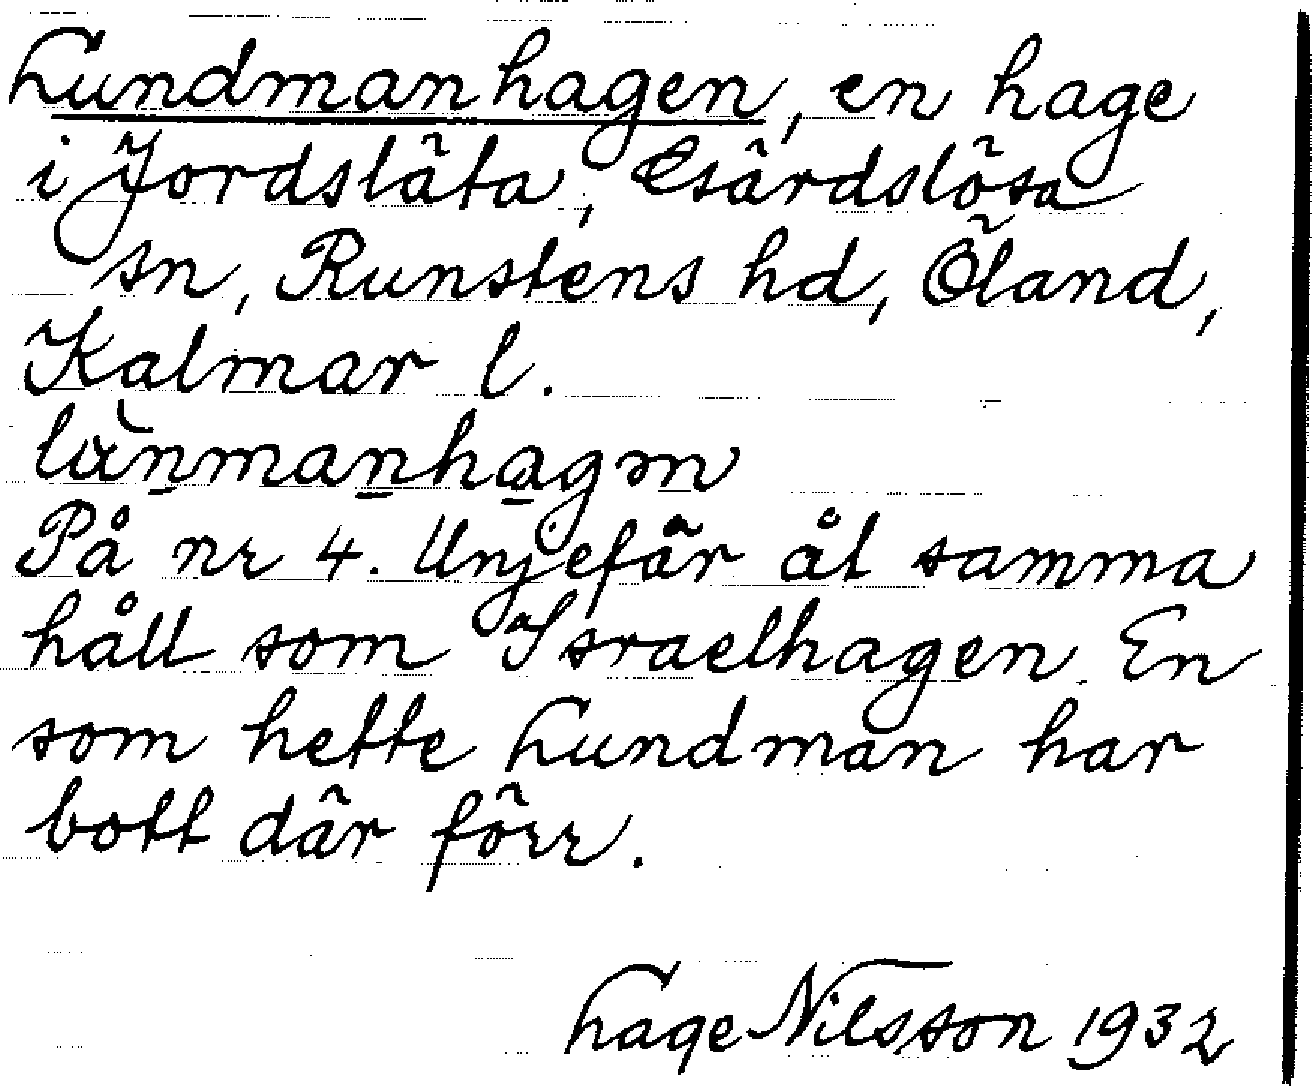 Lundmanhagen, en hage
i Jordsläta, Gärdslösa
sn, Runstens hd, Öland,
Kalmar l.
På nr 4. Ungefär åt samma
håll som Israelhagen. En
som hette Lundman har
bott där förr.
Lage Nilsson 1932